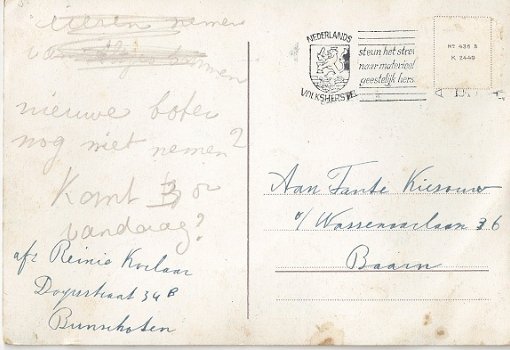 iedeen nemen
nieuwe boter
nog niet nemen?
Komt 3, or
vandaag?
afz Reinie Koelaar
Dorpsstraat 34B
Bunschoten
NEDERLANDS
VOLKSHERSTEL
steun het stre
naar materieel
geestelijk hers
Nº 436 3
K 2449
Aan Tante
a/ Wassenaarlaan 36
Baarn